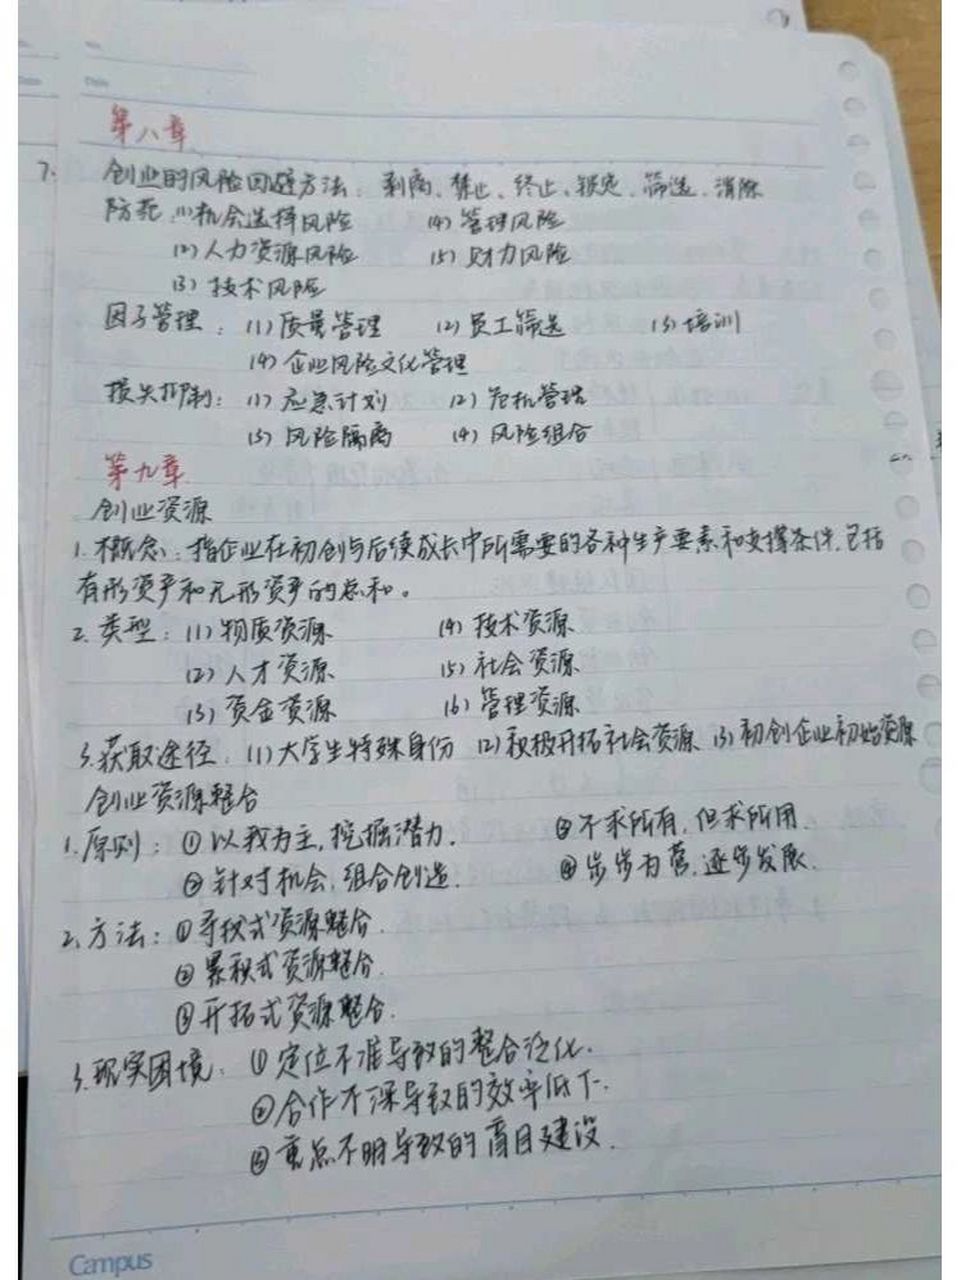 No.
Date
第八章
7. 创业的风险回避方法：剥离、禁止、终止、锁定、筛选、消除
防范 (1)机会选择风险 (4)管理风险
(2)人力资源风险 (5)财力风险
(3)技术风险
因子管理：(1)质量管理 (2)员工筛选 (3)培训
(4)企业风险文化管理
损失抑制：(1)应急计划 (2)危机管理
(3)风险隔离 (4)风险组合
第九章
创业资源
1.概念：指企业在初创与后续成长中所需要的各种生产要素和支撑条件,包括
有形资产和无形资产的总和。
2.类型：(1)物质资源 (4)技术资源
(2)人才资源 (5)社会资源
(3)资金资源 (6)管理资源
3.获取途径：(1)大学生特殊身份 (2)积极开拓社会资源 (3)初创企业初始资源
创业资源整合
1.原则：①以我为主,挖掘潜力. ③不求所有,但求所用.
②针对机会,组合创造. ④步步为营,逐步发展.
2.方法：①寻找式资源整合.
②累积式资源整合.
③开拓式资源整合.
3.现实困境：①定位不准导致的整合泛化.
②合作不深导致的效率低下.
③重点不明导致的盲目建设.
Campus